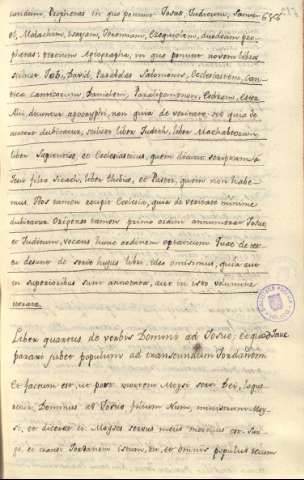 tandum, Prophetas in quo ponunt Josue, Judicum, Samue-
lem, Malachim, Isayam, Jeremiam, Ezequielem, duodecim pro-
phetas: tercium Agiographa, in quo ponunt novem libros
scilicet Job, David, Parabolas Salomonis, Eclesiastem, Can-
tica canticorum, Danielem, Paralipomenon, Esdram, Ester.
Alii dicuntur apocryphi, non quia de veritate, sed quia de
autore dubitatur, scilicet liber Judith, liber Machabeorum,
liber Sapientie, et Eclesiasticus, quem dicunt scriptum a
Jesu filio Sirach, liber Thobie, et Pastor, quem non habe-
mus. Hos tamen recipit Ecclesia, quia de veritate minime
dubitatur. Origenes tamen primo ordini annumerat Josue,
et Judicum, vocans hunc ordinem
et de sorte hujus libri ideo omisimus, quia
in superioribus sunt annotata, aut in isto volumine
Liber quartus de verbis Domini ad Josue, et quod
parari jubet populum ad transeundum Jordanem
Et factum est, ut post mortem Moysi servi Dei, loque-
retur Dominus ad Josue filium Nun, ministrum Moy-
si, et diceret ei: Moyses servus meus mortuus est. Sur-
ge, et transi Jordanem istum, tu, et omnis populus tecum